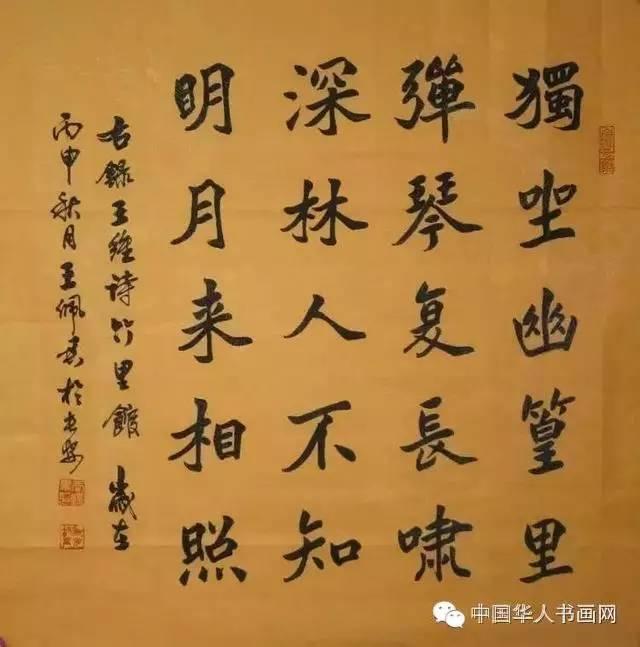 獨坐幽篁里
彈琴复長啸
深林人不知
明月来相照
右錄王維诗竹里館 歲在
丙申秋月王佩书於长安
中国华人书画网